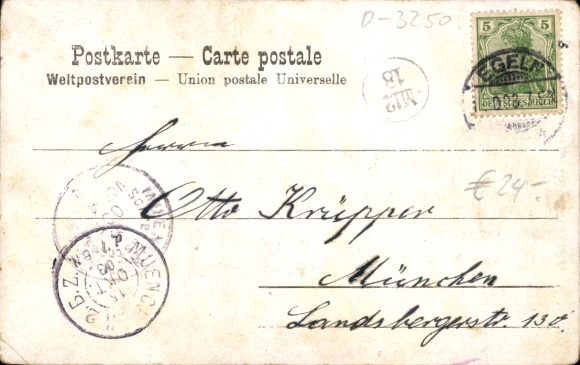 O-3250
Postkarte — Carte postale
Weltpostverein — Union postale Universelle
5
DEUTSCHES REICH
EGELN
M12
18
Herrn
Otto Krüpper
€ 24.-
München
Landsbergerstr. 130.
MUENCH
2.B.Z.
OKT
03